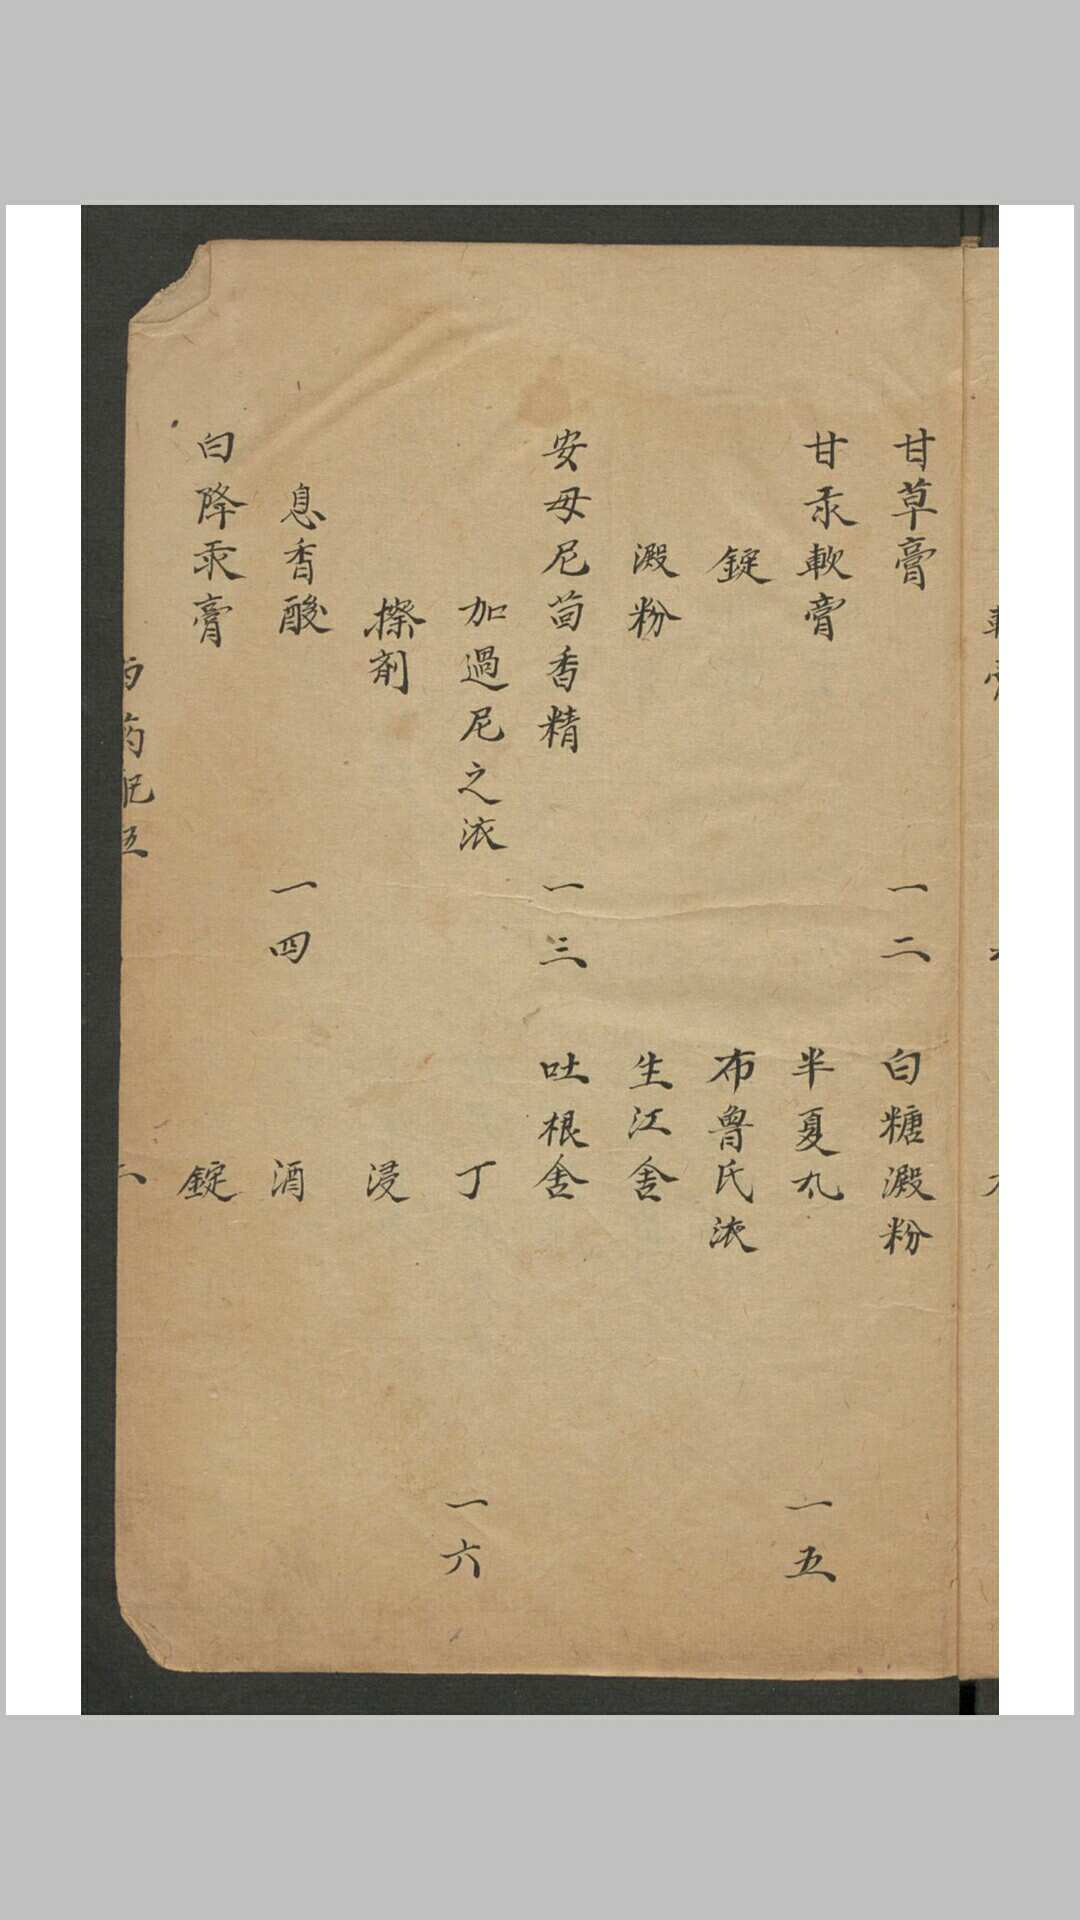 甘草膏 一二
甘汞軟膏
錠
澱粉
安母尼茴香精 一三
加過尼之液
擦剤
息香酸 一四
白降汞膏
白糖澱粉
半夏丸 一五
布魯氏液
生江舎
吐根舎
丁 一六
浸
酒
錠